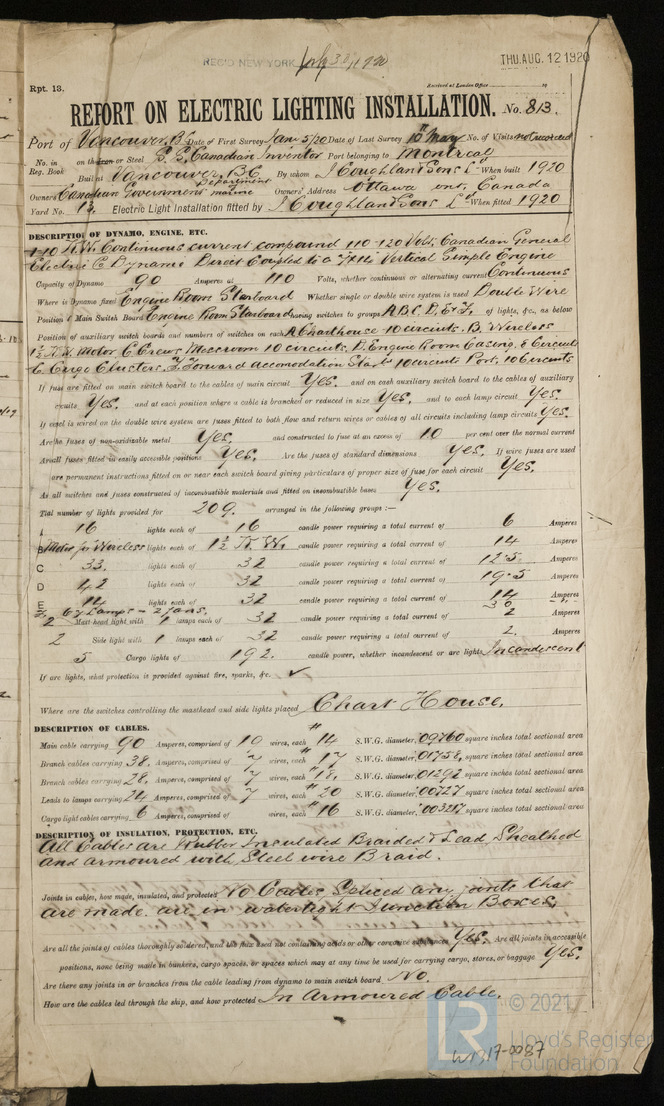 REC'D NEW YORK July 30, 1920
THU. AUG. 12 1920
Rpt. 13.
Received at London Office
REPORT ON ELECTRIC LIGHTING INSTALLATION. No. 813.
Port of Vancouver, BC Date of First Survey Jan 5/20 Date of Last Survey 10th May No. of Visits
No. in Reg. Book on the Iron or Steel S.S. Canadian Inventor Port belonging to Montreal
Built at Vancouver, B.C. By whom J Coughlan & Sons Ld When built 1920
Owners Canadian Government Department marine Owners' Address Ottawa ont. Canada
Yard No. 13. Electric Light Installation fitted by J Coughlan & Sons Ld When fitted 1920
DESCRIPTION OF DYNAMO, ENGINE, ETC.
1-10 K.W. Continuous current compound 110-120 Volt, Canadian General
Electric Co Dynamo Direct Coupled to a Vertical Simple Engine
Capacity of Dynamo 90 Amperes at 110 Volts, whether continuous or alternating current Continuous
Where is Dynamo fixed Engine Room Starboard Whether single or double wire system is used Double Wire
Position of Main Switch Board Engine Room Starboard having switches to groups A B C D, E & F. of lights, &c., as below
Position of auxiliary switch boards and numbers of switches on each A Charthouse 10 circuits. B. Wireless
1½ K.W. Motor C Crews Messroom 10 circuits, D. Engine Room Casing, 8 Circuits
E Cargo Clusters. F. Forward Accomodation Starb 10 circuits Port, 10 Circuits
If fuses are fitted on main switch board to the cables of main circuit Yes. and on each auxiliary switch board to the cables of auxiliary
circuits Yes. and at each position where a cable is branched or reduced in size Yes. and to each lamp circuit Yes.
If vessel is wired on the double wire system are fuses fitted to both flow and return wires or cables of all circuits including lamp circuits Yes.
Are the fuses of non-oxidizable metal Yes. and constructed to fuse at an excess of 10 per cent over the normal current
Are all fuses fitted in easily accessible positions Yes. Are the fuses of standard dimensions Yes. If wire fuses are used
are permanent instructions fitted on or near each switch board giving particulars of proper size of fuse for each circuit Yes.
Are all switches and fuses constructed of incombustible materials and fitted on incombustible bases Yes.
Total number of lights provided for 209. arranged in the following groups :—
A 16 lights each of 16 candle power requiring a total current of 6 Amperes
B Motor for Wireless lights each of 1½ K.W. candle power requiring a total current of 14 Amperes
C 33. lights each of 32 candle power requiring a total current of 12.5 Amperes
D 42 lights each of 32 candle power requiring a total current of 19.5 Amperes
E 14 lights each of 32 candle power requiring a total current of 14 Amperes
F. 67 Lamps - 2 fans. 30
2 Mast head light with 1 lamps each of 32 candle power requiring a total current of 2 Amperes
2 Side light with 1 lamps each of 32 candle power requiring a total current of 2. Amperes
5 Cargo lights of 192. candle power, whether incandescent or arc lights Incandescent
If arc lights, what protection is provided against fire, sparks, &c. ✓
Where are the switches controlling the masthead and side lights placed Chart House.
DESCRIPTION OF CABLES.
Main cable carrying 90 Amperes, comprised of 19 wires, each #14 S.W.G. diameter, .09760 square inches total sectional area
Branch cables carrying 38. Amperes, comprised of 7 wires, each #17 S.W.G. diameter, .01758, square inches total sectional area
Branch cables carrying 28, Amperes, comprised of 7 wires, each #18, S.W.G. diameter, .01292 square inches total sectional area
Leads to lamps carrying 24 Amperes, comprised of 7 wires, each #20 S.W.G. diameter, .00727 square inches total sectional area
Cargo light cables carrying 6 Amperes, comprised of wires, each #16 S.W.G. diameter, .003217 square inches total sectional area
DESCRIPTION OF INSULATION, PROTECTION, ETC.
All Cables are Rubber Insulated Braided & Lead, Sheathed
and armoured with Steel wire Braid.
Joints in cables, how made, insulated, and protected No Cables Spliced any joints that
are made. are in watertight Junction Boxes,
Are all the joints of cables thoroughly soldered, and the flux used not containing acids or other corrosive substances Yes. Are all joints in accessible
positions, none being made in bunkers, cargo spaces, or spaces which may at any time be used for carrying cargo, stores, or baggage Yes.
Are there any joints in or branches from the cable leading from dynamo to main switch board No.
How are the cables led through the ship, and how protected In Armoured Cable.
© 2021
LR Lloyd's Register
Foundation
W1317-0087